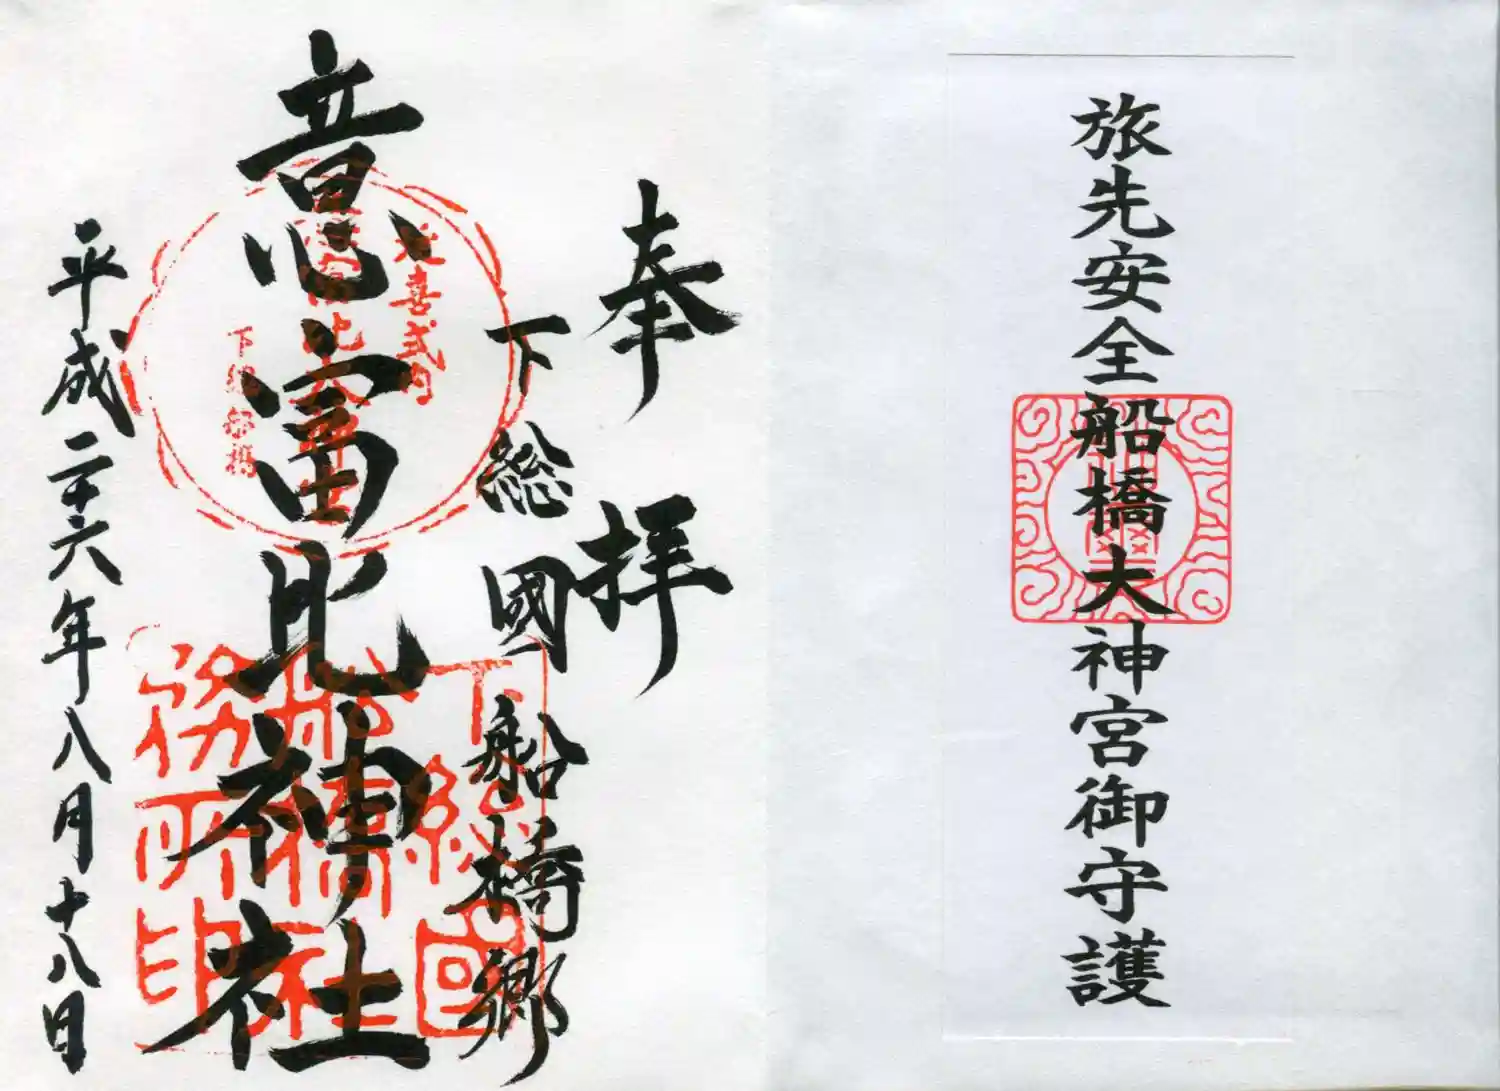 旅先安全船橋大神宮御守護
奉拝
下総國船橋郷
意富比神社
平成二十六年八月十八日
延喜式内
下総船橋
下総國
船橋社
務所印